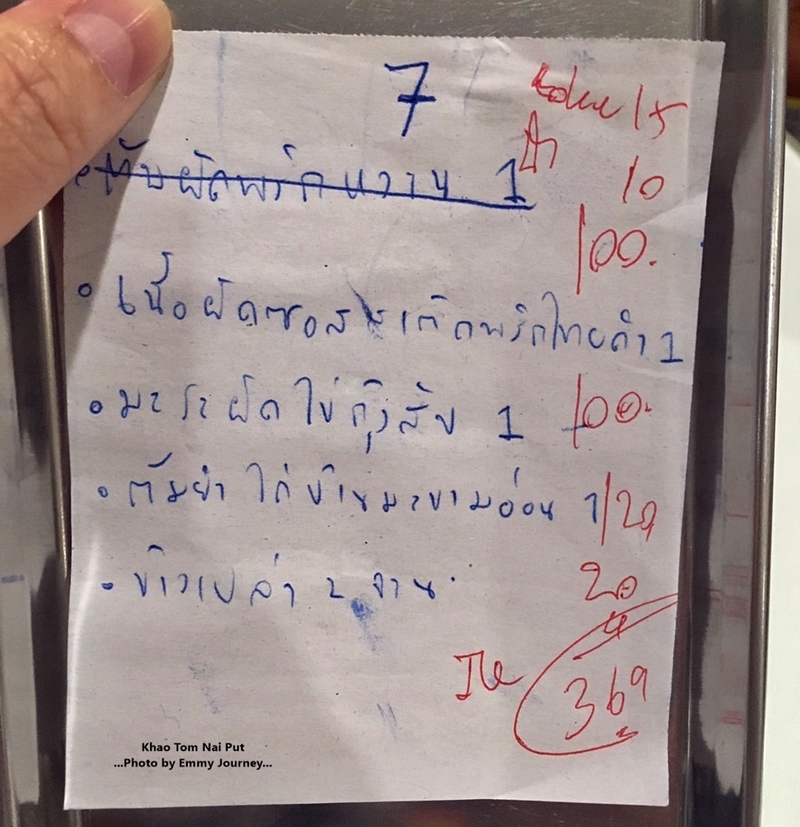 7
15
• ตับผัดพริกหวาน 1
น้ำ 10
100.
• เนื้อผัดซอส พริกไทยดำ 1
• มะระผัดไข่กุ้งสับ 1 100.
• ต้มยำไก่บ้านมะขามอ่อน 1 120
• ข้าวเปล่า ๒ จาน 20
4
รวม 369
Khao Tom Nai Put
...Photo by Emmy Journey...